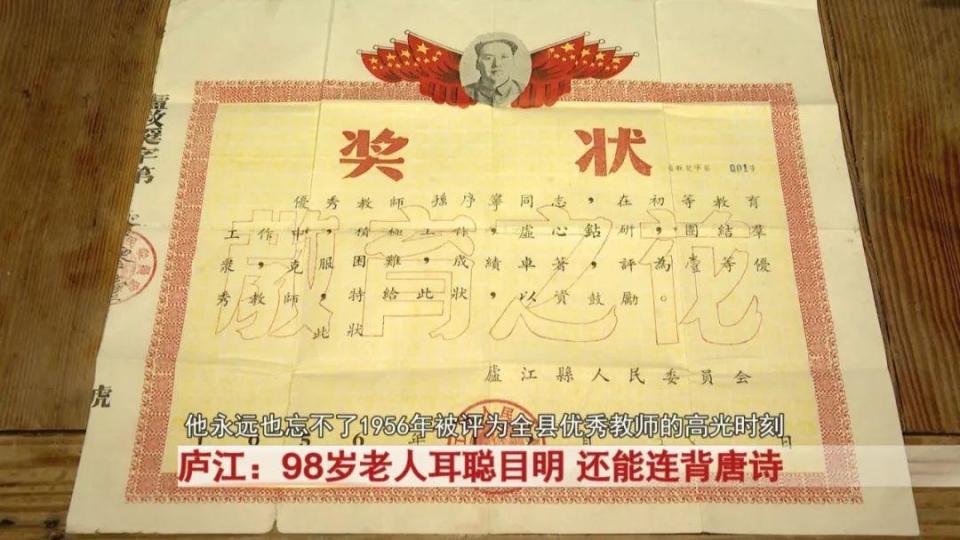 奖状
001号
優秀教师孫序寧同志，在初等教育
工作中，積極工作，虚心鉆研，團結羣
衆，克服困難，成績卓著，評為壹等優
秀教师，特給此状，以資鼓励。
此状
教育之花
廬江縣人民委員会
1956年
虎
他永远也忘不了1956年被评为全县优秀教师的高光时刻
庐江：98岁老人耳聪目明 还能连背唐诗